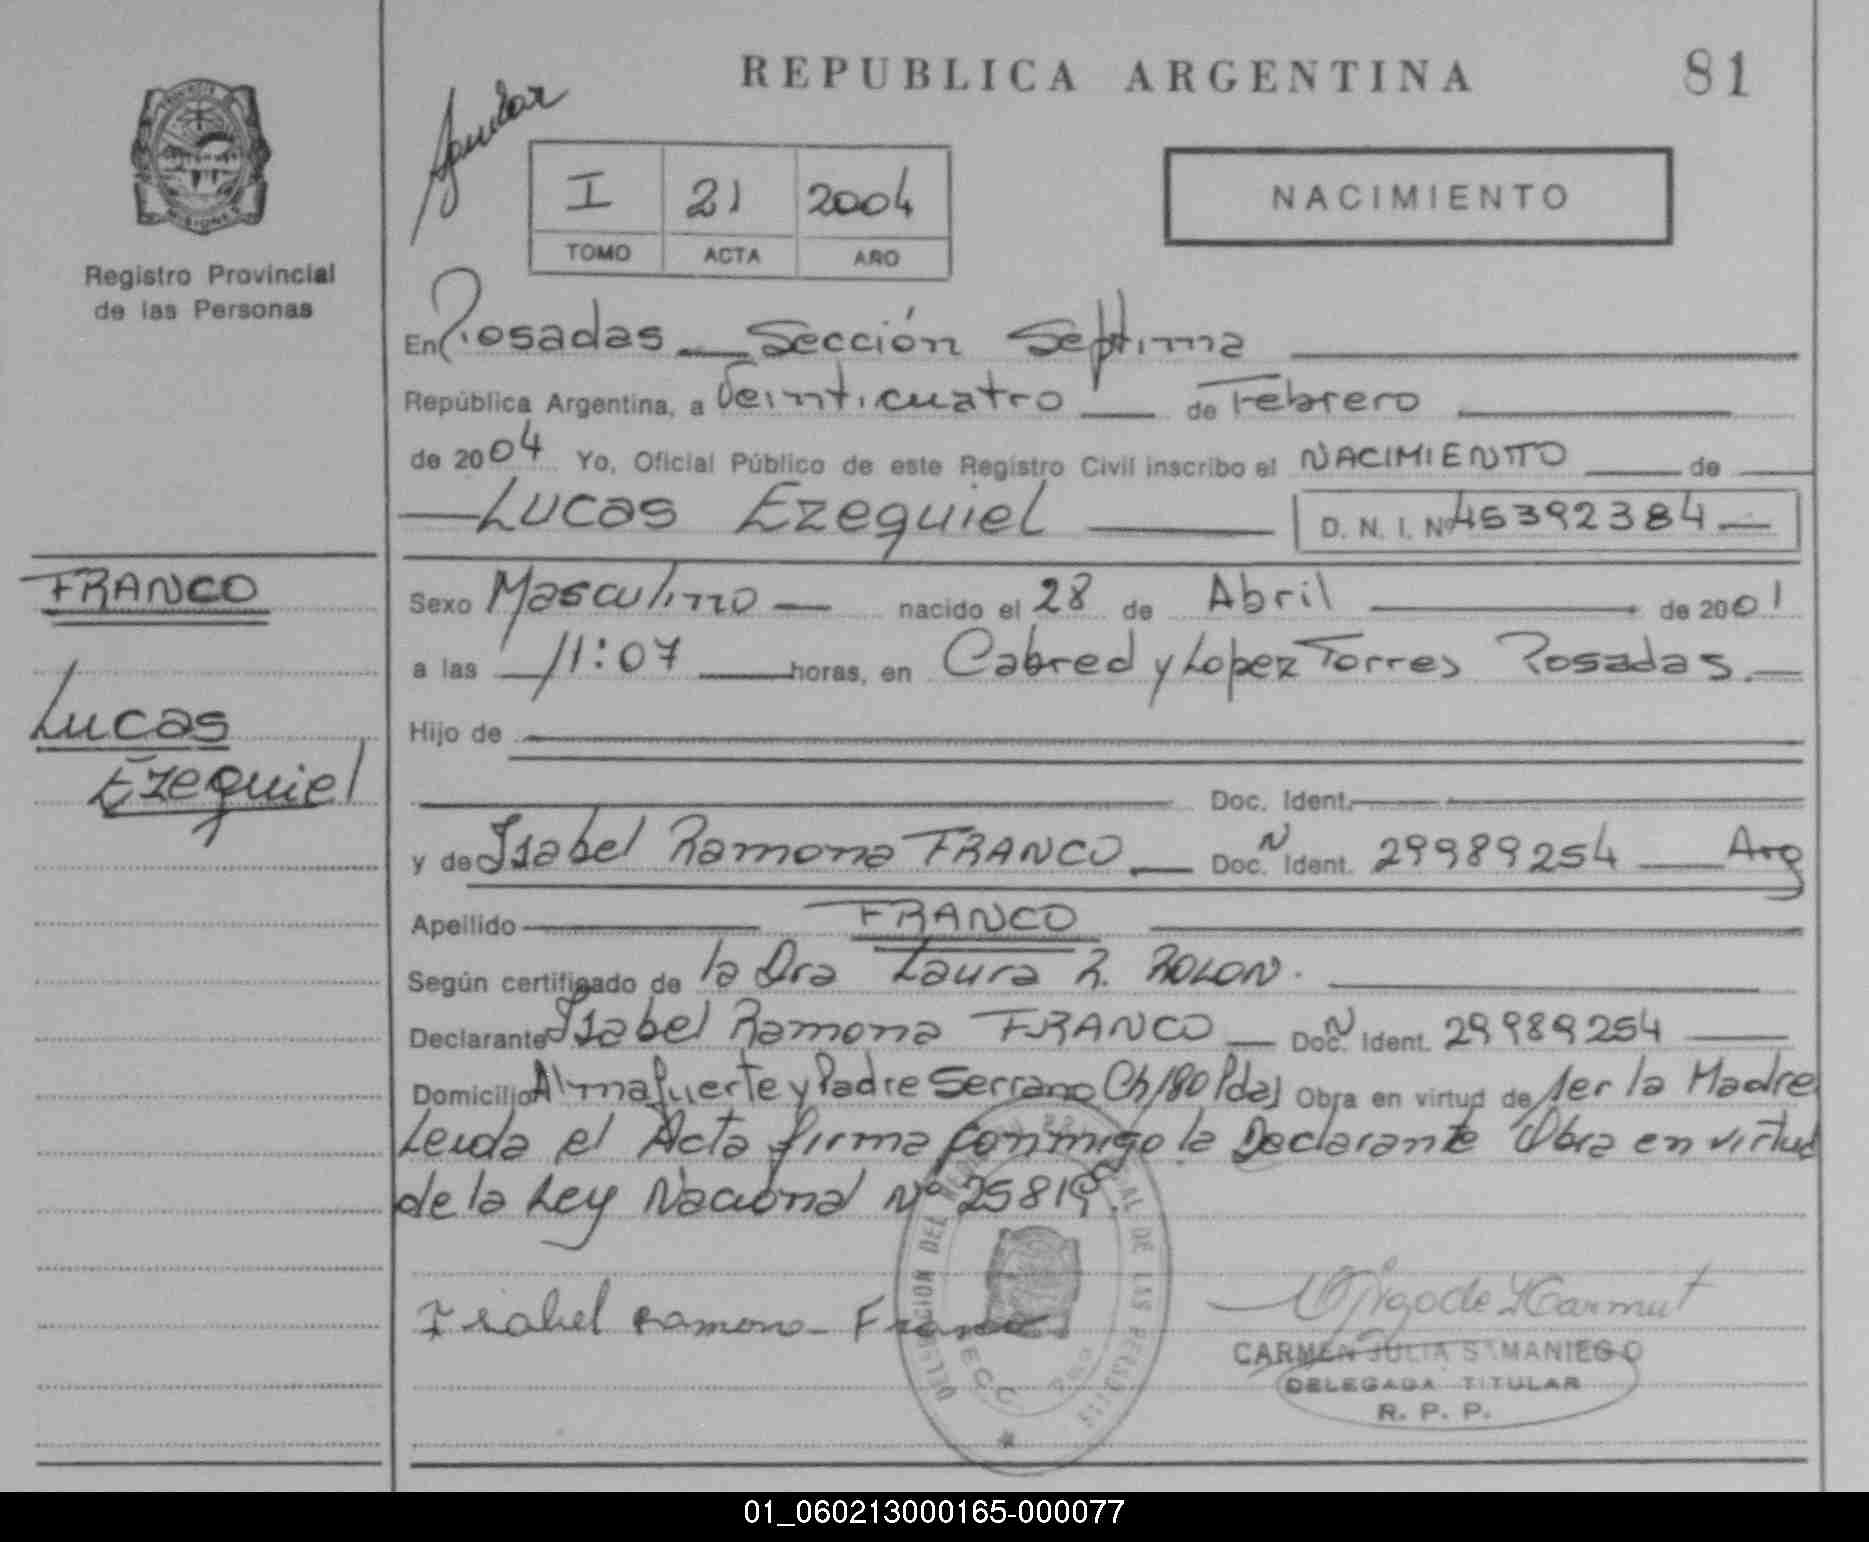 REPUBLICA ARGENTINA
81
PROVINCIA
MISIONES
Registro Provincial
de las Personas
I 21 2004
TOMO ACTA AÑO
NACIMIENTO
En Posadas Sección Septima
República Argentina, a Veinticuatro de Febrero
de 2004 Yo, Oficial Público de este Registro Civil inscribo el NACIMIENTO de
Lucas Ezequiel D. N. I. Nº 45392384
FRANCO
Lucas
Ezequiel
Sexo Masculino nacido el 28 de Abril de 2001
a las 11:07 horas, en Cabred y Lopez Torres Posadas.
Hijo de
Doc. Ident.
y de Isabel Ramona FRANCO Doc. N Ident. 29989254 Arg
Apellido FRANCO
Según certificado de la Dra Laura R. ROLON.
Declarante Isabel Ramona FRANCO Doc. N Ident. 29989254
Domicilio Almafuerte y Padre Serrano Ch/180 Pdas Obra en virtud de ser la Madre
Leida el Acta firma conmigo la Declarante Obra en virtud
de la Ley Nacional Nº 25819.
Isabel Ramona Franco
CARMEN JULIA SAMANIEGO
DELEGADA TITULAR
R. P. P.
01_060213000165-000077